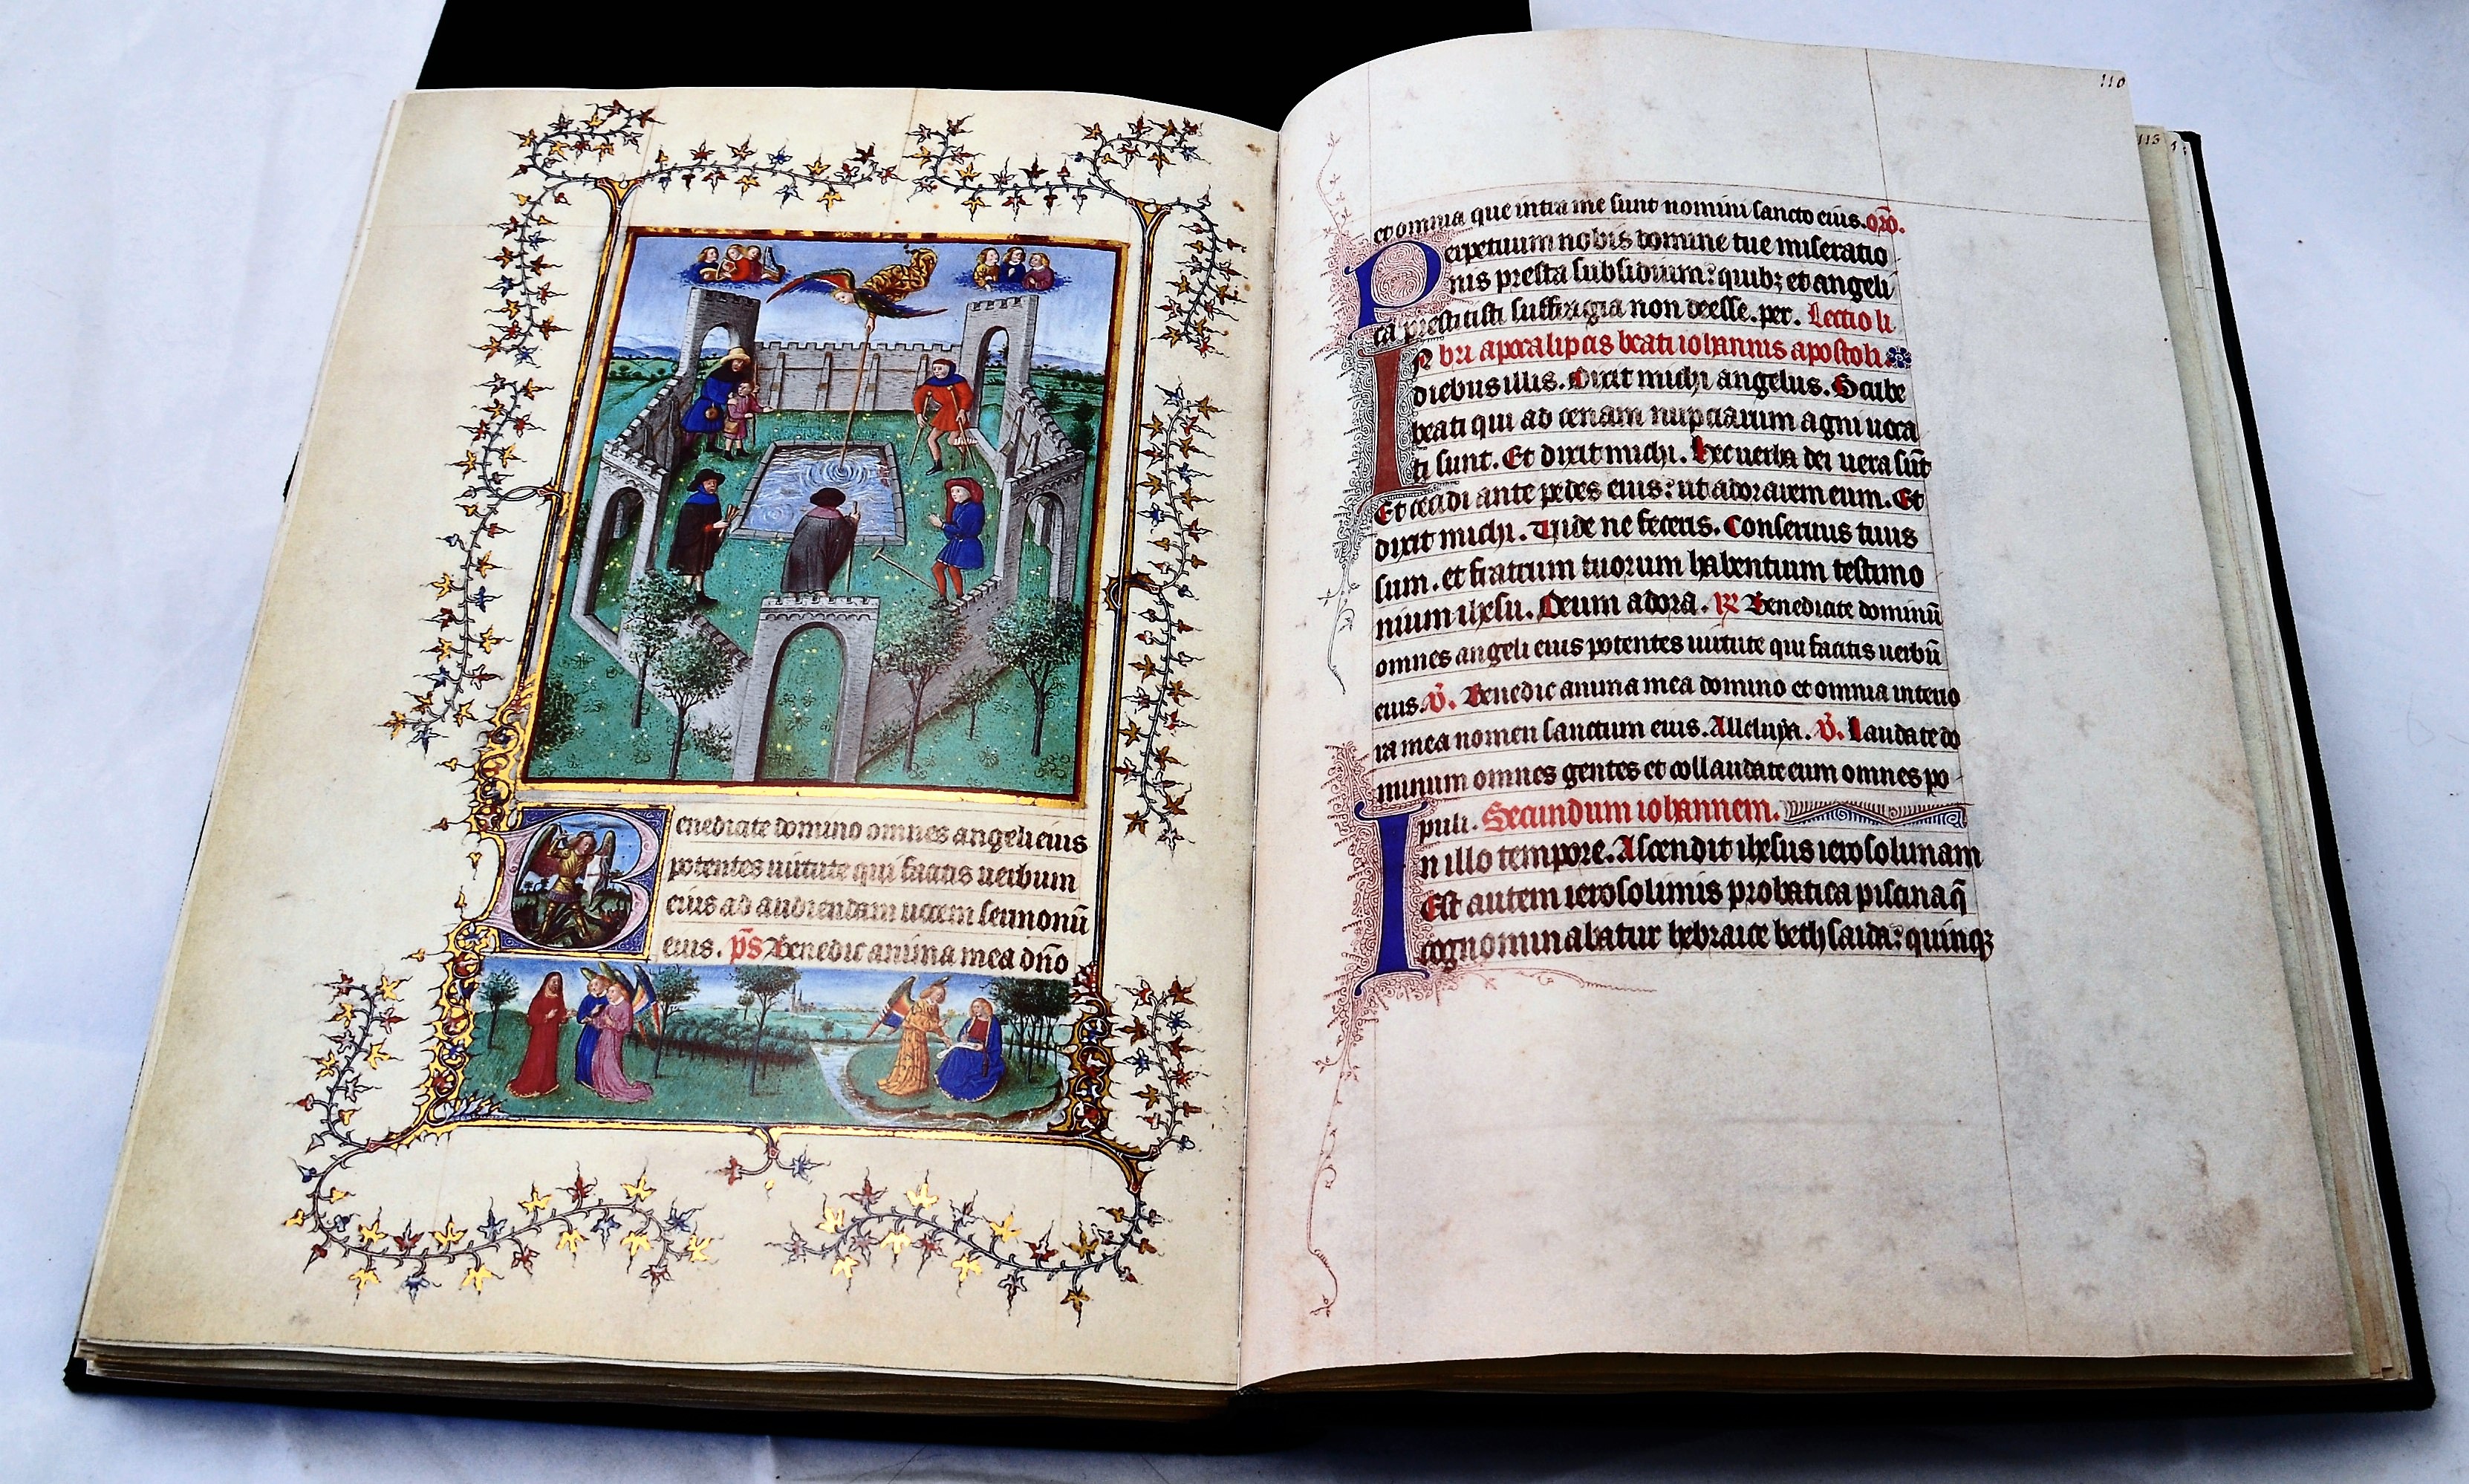 Benedicite domino omnes angeli eius
potentes uirtute qui facitis uerbum
eius ad audiendam uocem sermonū
eius. p̄s Benedic anima mea dn̄o
110
115
et omnia que intra me sunt nomini sancto eius. or̄o.
Perpetuum nobis domine tue miseratio
nis presta subsidium: quibꝫ et angeli
ca prestitisti suffragia non deesse. per. Lectio li
bri apocalipsis beati iohannis apostoli.
In diebus illis. Dixit michi angelus. Scribe
beati qui ad cenam nupciarum agni uoca
ti sunt. Et dixit michi. Hec uerba dei uera sūt
Et cecidi ante pedes eius: ut adorarem eum. Et
dixit michi. Uide ne feceris. Conseruus tuus
sum. et fratrum tuorum habentium testimo
nium ihesu. Deum adora. R̄ Benedicite dominū
omnes angeli eius potentes uirtute qui facitis uerbū
eius. v̄. Benedic anima mea domino et omnia interio
ra mea nomen sanctum eius. Alleluya. v̄. Laudate do
minum omnes gentes et collaudate eum omnes po
puli. Secundum iohannem.
In illo tempore. Ascendit ihesus ierosolimam
Est autem ierosolimis probatica piscina q̄
cognominabatur hebraice bethsaida: quinqꝫ